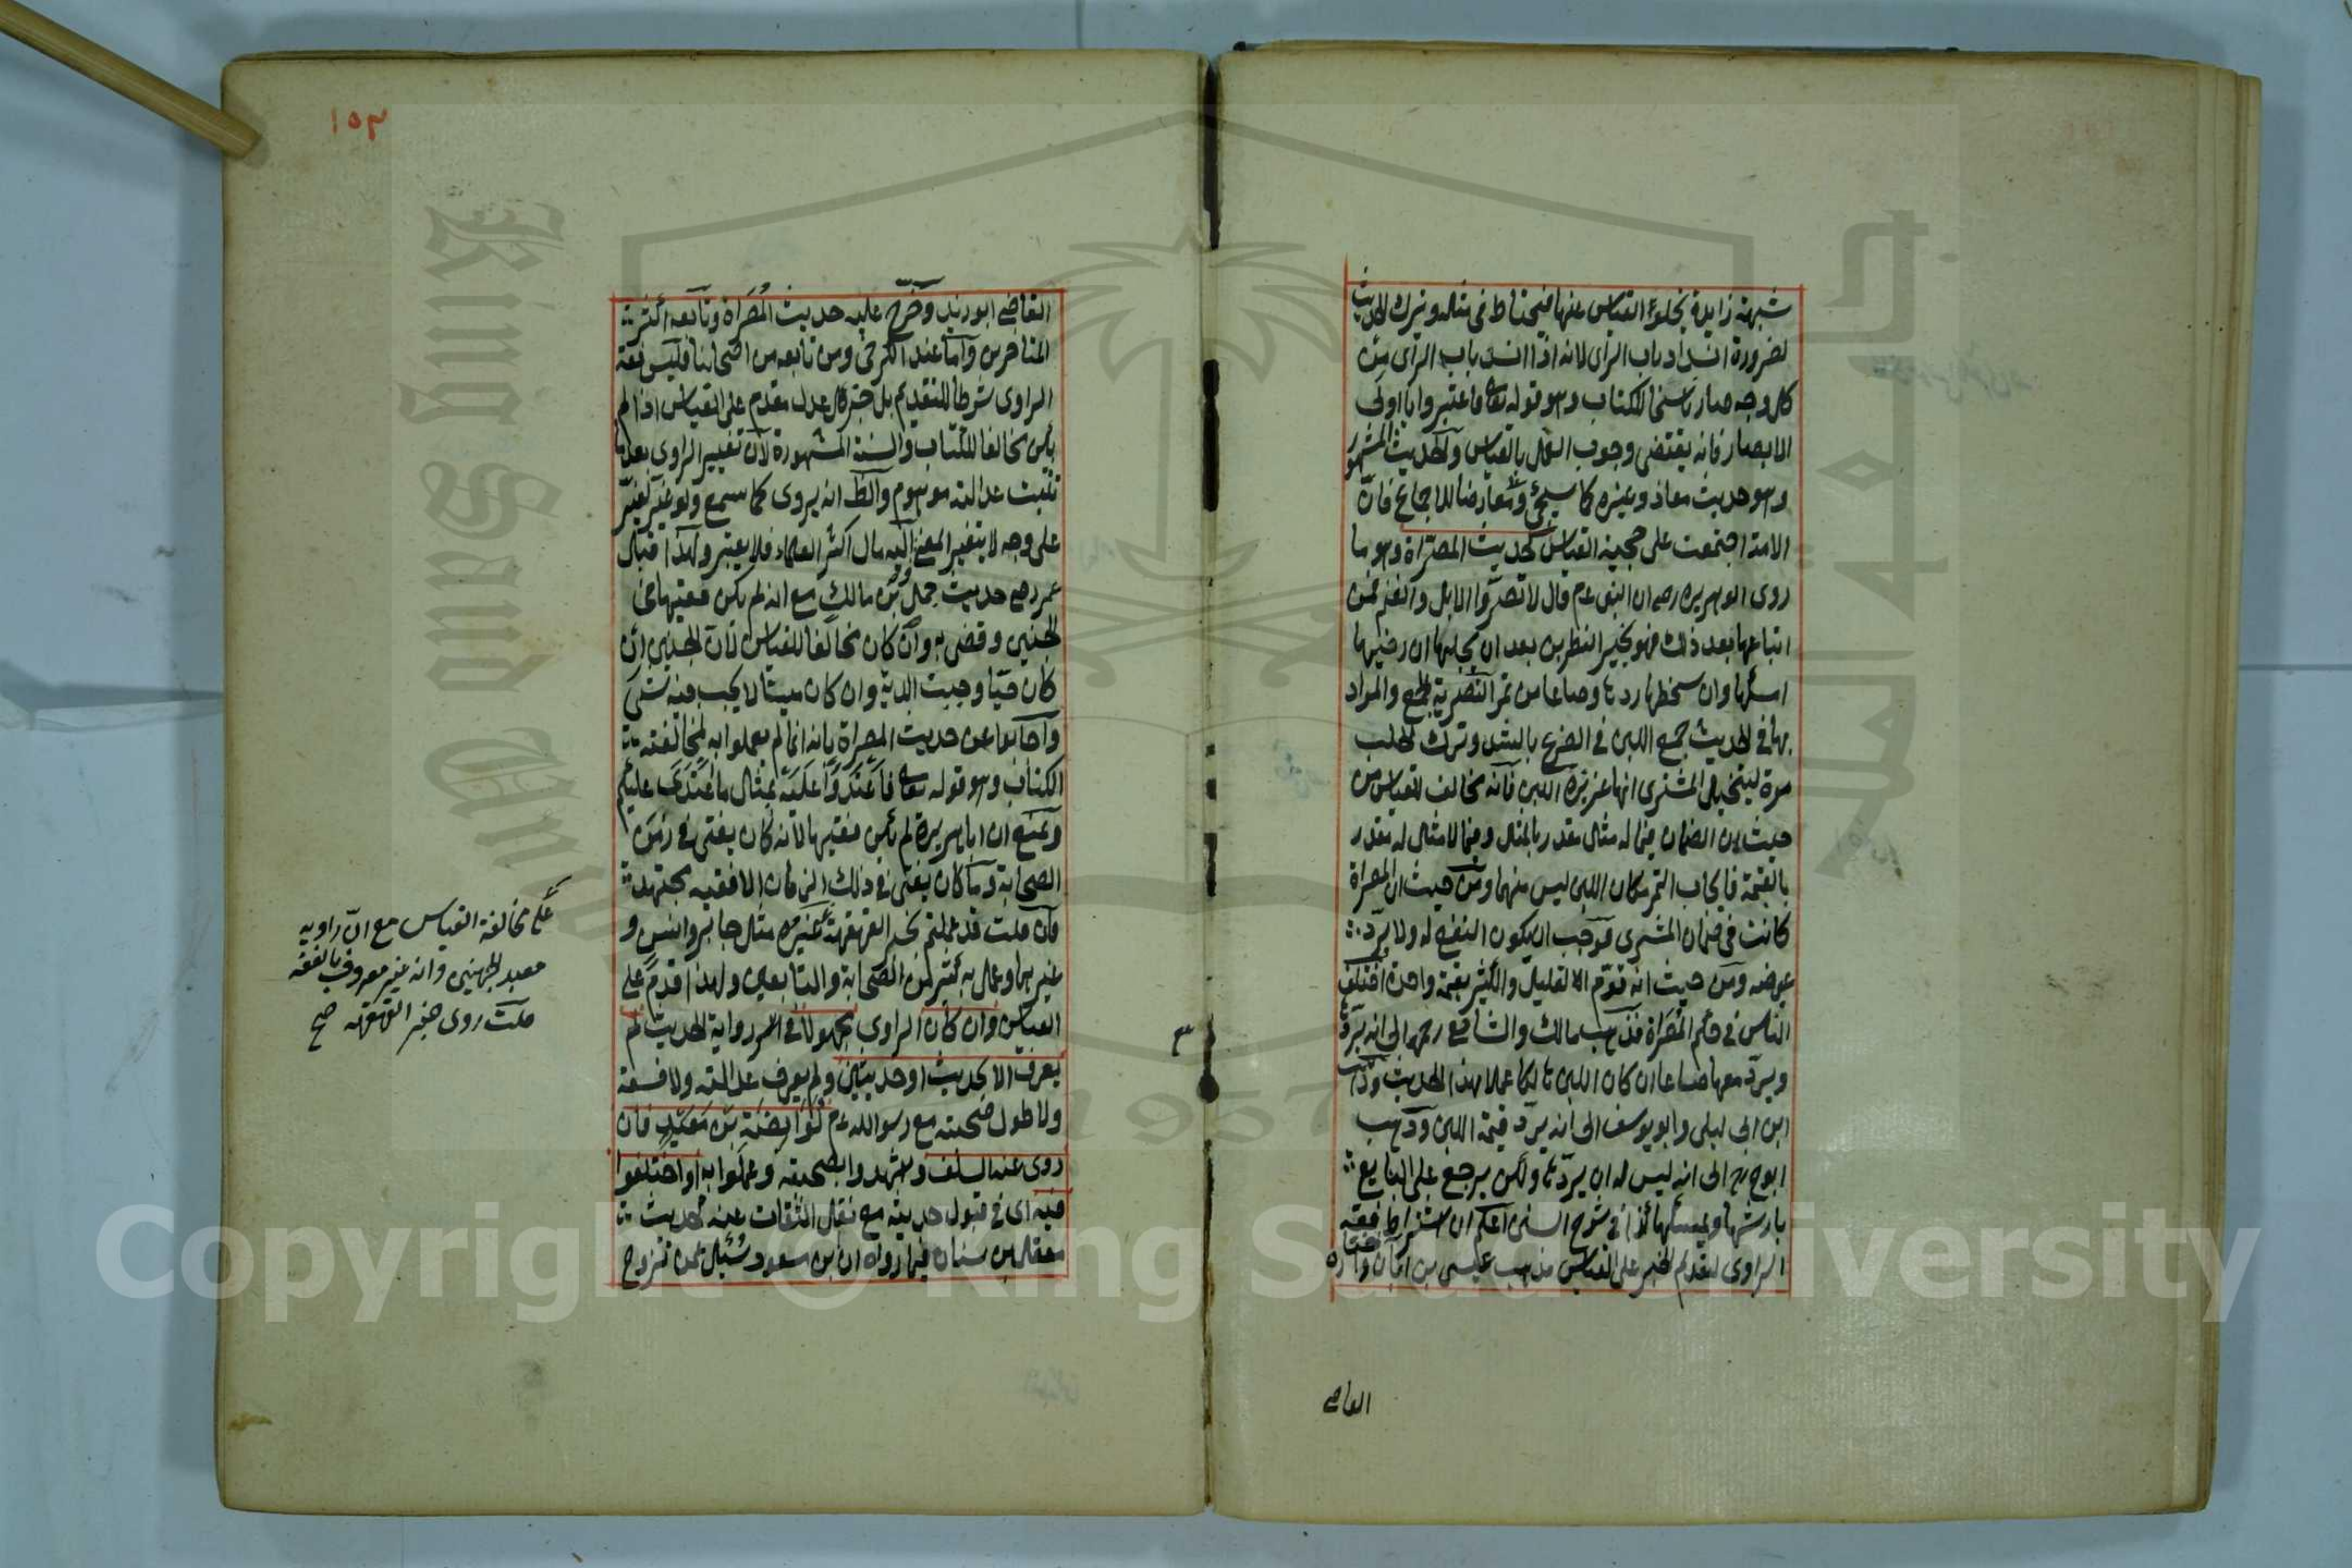 شبهة زايدة يخلوء القياس عنها فيحتاط في مثاله وترك الحديث
لضرورة انسداد باب الرأى لانه اذا انسد باب الرأى من
كل وجه صار ناسخا للكتاب وهو قوله تعا فاعتبروا يا اولى
الابصار فانه يقتضى وجوب العمل بالقياس وللحديث المشهور
وهو حديث معاذ وغيره كما سيجئ ومعارضا للاجماع فان
الامة اجتمعت على حجية القياس كحديث المصراة وهو ما
روى ابو هريره رضه ان النبى ءم قال لا تصروا الابل والغنم فمن
ابتاعها بعد ذلك فهو بخير النظرين بعد ان يحلبها ان رضيها
امسكها وان سخطها ردها وصاعا من تمر التصرية الجمع والمراد
بها في الحديث جمع اللبن في الضرع بالشد وترك الحلب
مرة ليتخيل المشترى انها غزيرة اللبن فانه مخالف للقياس من
حيث ان الضمان فيما له مثال مقدر بالمثل وفيما لا مثال له مقدر
بالقيمة فايجاب التمر مكان اللبن ليس منهما ومن حيث ان المصراة
كانت في ضمان المشترى فوجب ان يكون النفع له ولا يرد
عوضه ومن حيث انه قوم القليل والكثير بقيمة واحدة اختلف
الناس في حكم المصراة فذهب مالك والشافعى رحمه الى انه يردها
ويرد معها صاعا ان كان اللبن هالكا عملا بهذا الحديث وذهب
ابن ابى ليلى وابو يوسف الى انه يرد قيمة اللبن وذهب
ابو ح رح الى انه ليس له ان يردها ولكن يرجع على البايع
بارشها ويمسكها كذا في شرح السنن اعلم ان اشتراط فقه
الراوى لتقديم الخبر على القياس مذهب عيسى بن ابان واختاره
القاضى
القاضى ابو زيد وخرج عليه حديث المصراة وتابعه اكثر
المتاخرين واما عند الكرخى ومن تابعه من اصحابنا فليس فقه
الراوى شرطا للتقديم بل خبر كل عدل مقدم على القياس اذا لم
يكن مخالفا للكتاب والسنة المشهورة لان تغيير الراوى بعد ما
ثبت عدالته موهوم والظ انه يروى كما سمع ولو غير لغير
على وجه لا يتغير المعنى اليه مال اكثر العلماء فلا يعتبر ولهذا قبل
عمر رضه حديث حمل بن مالك مع انه لم يكن فقيها في
الجنين وقضى به وان كان مخالفا للقياس لان الجنين ان
كان حيا وجبت الدية وان كان ميتا لا يجب فيه شئ
واجابوا عن حديث المصراة بانه انما لم يعملوا به لمخالفته
الكتاب وهو قوله تعا فاعتدوا عليه بمثال ما اعتدى عليكم
ونمنع ان ابا هريرة لم يكن فقيها لانه كان يفتى في زمن
الصحابة وما كان يفتى في ذلك الزمان الا فقيه مجتهد
فان قلت قد عملتم بخبر القهقهة غيره مثال جابر وانس و
غيرهما وعمل به كثير من الصحابة والتابعين ولهذا قدم على
القياس وان كان الراوى مجهولا في رواية الحديث لم
يعرف الا بحديث او حديثين ولم يعرف عدالته ولا فسقه
ولا طول صحبته مع رسول الله ءم كوابصة بن معبد فان
روى عنه السلف وشهدوا بصحته وعملوا به او اختلفوا
فيه اى في قبول حديثه مع نقل الثقات عنه كحديث
معقل بن سنان فيما رواه ان ابن مسعود سئل عمن تزوج
١٥٣
على مخالفة القياس مع ان راويه
معبد الجهنى وانه غير معروف بالفقه
قلت روى خبر القهقهه صح
Copyright © King Saud University
King Saud Univ
1957